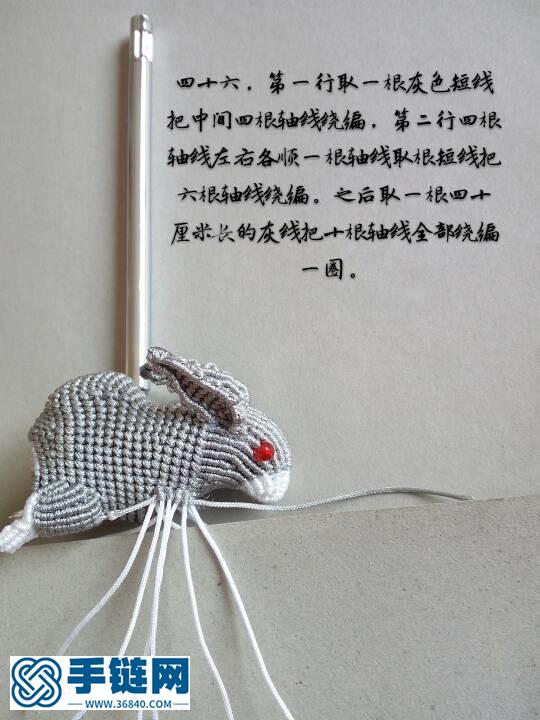 四十六，第一行取一根灰色短线
把中间四根轴线绕编，第二行四根
轴线左右各顺一根轴线取根短线把
六根轴线绕编。之后取一根四十
厘米长的灰线把十根轴线全部绕编
一圈。
手链网
WWW.36840.COM